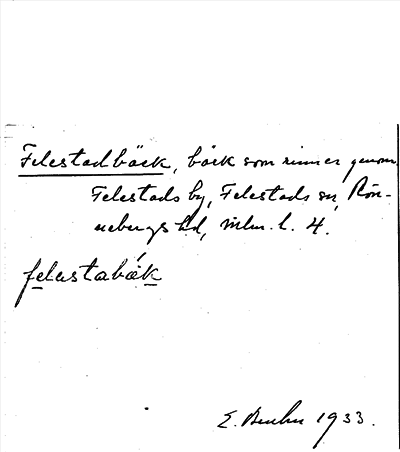 Felestadbäck, bäck som rinner genom
Felestads by, Felestads sn, Rön-
nebergs hd, Mlm. l. 4.
felestabäk
E. 1933.